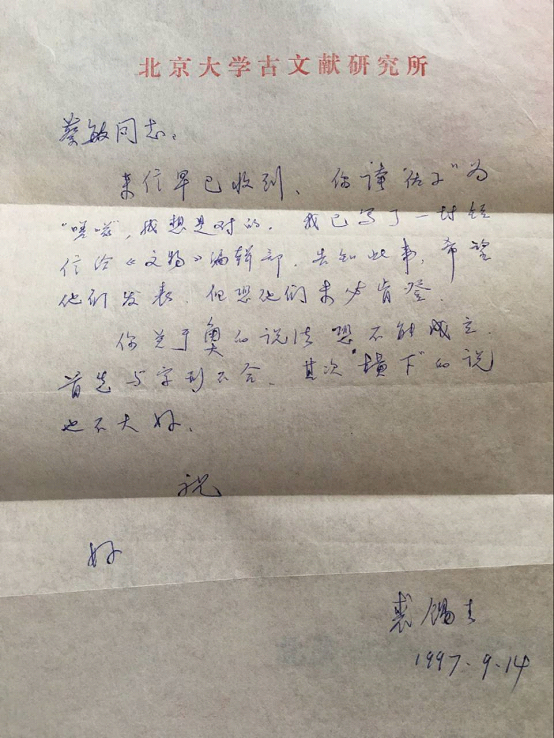 北京大学古文献研究所
蔡敏同志：
来信早已收到。你读"佐子"为
"嗟嗞"，我想是对的。我已写了一封短
信给《文物》编辑部，告知此事，希望
他们发表。但恐他们未必肯登。
你关于奥的说法恐不能成立。
首先与字形不合，其次"下"的说
也不大好。
祝
好
裘锡圭
1997.9.14